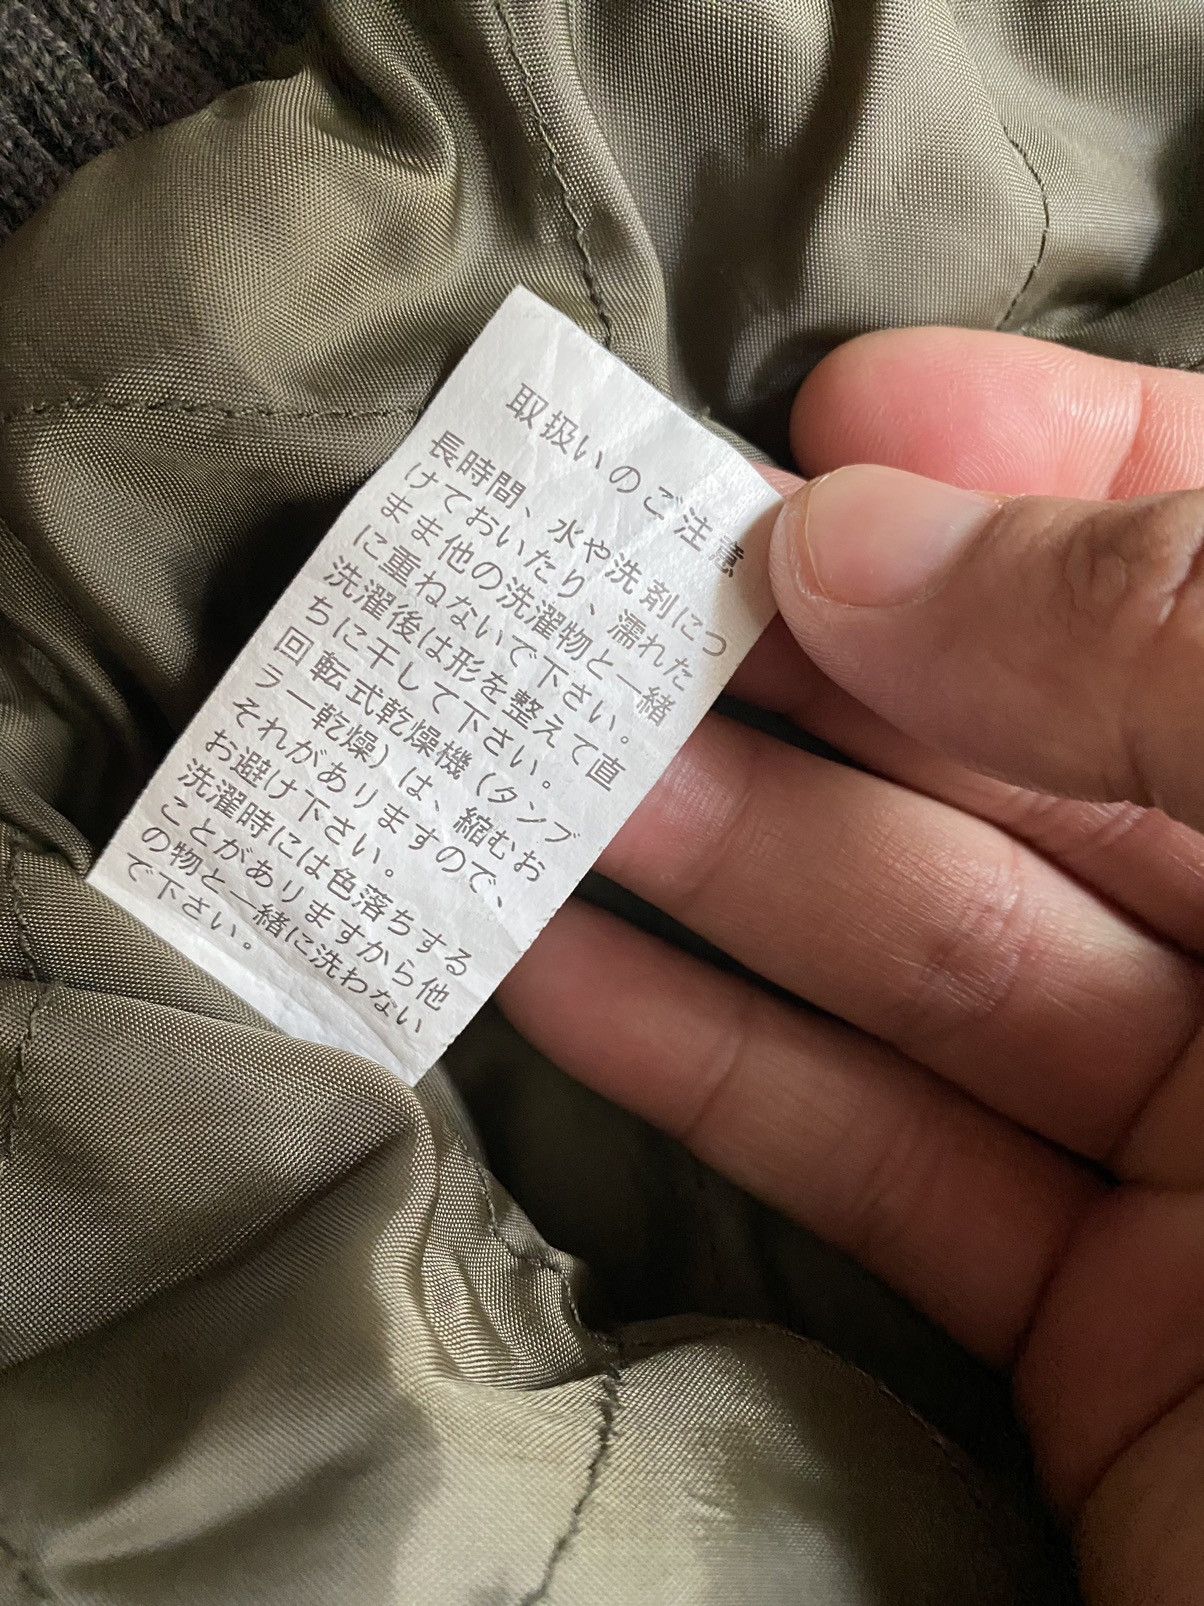 取扱いのご注意
長時間、水や洗剤につ
けておいたり、濡れた
まま他の洗濯物と一緒
に重ねないで下さい。
洗濯後は形を整えて直
ちに干して下さい。
回転式乾燥機(タンブ
ラー乾燥)は、縮むお
それがありますので、
お避け下さい。
洗濯時には色落ちする
ことがありますから他
の物と一緒に洗わない
で下さい。